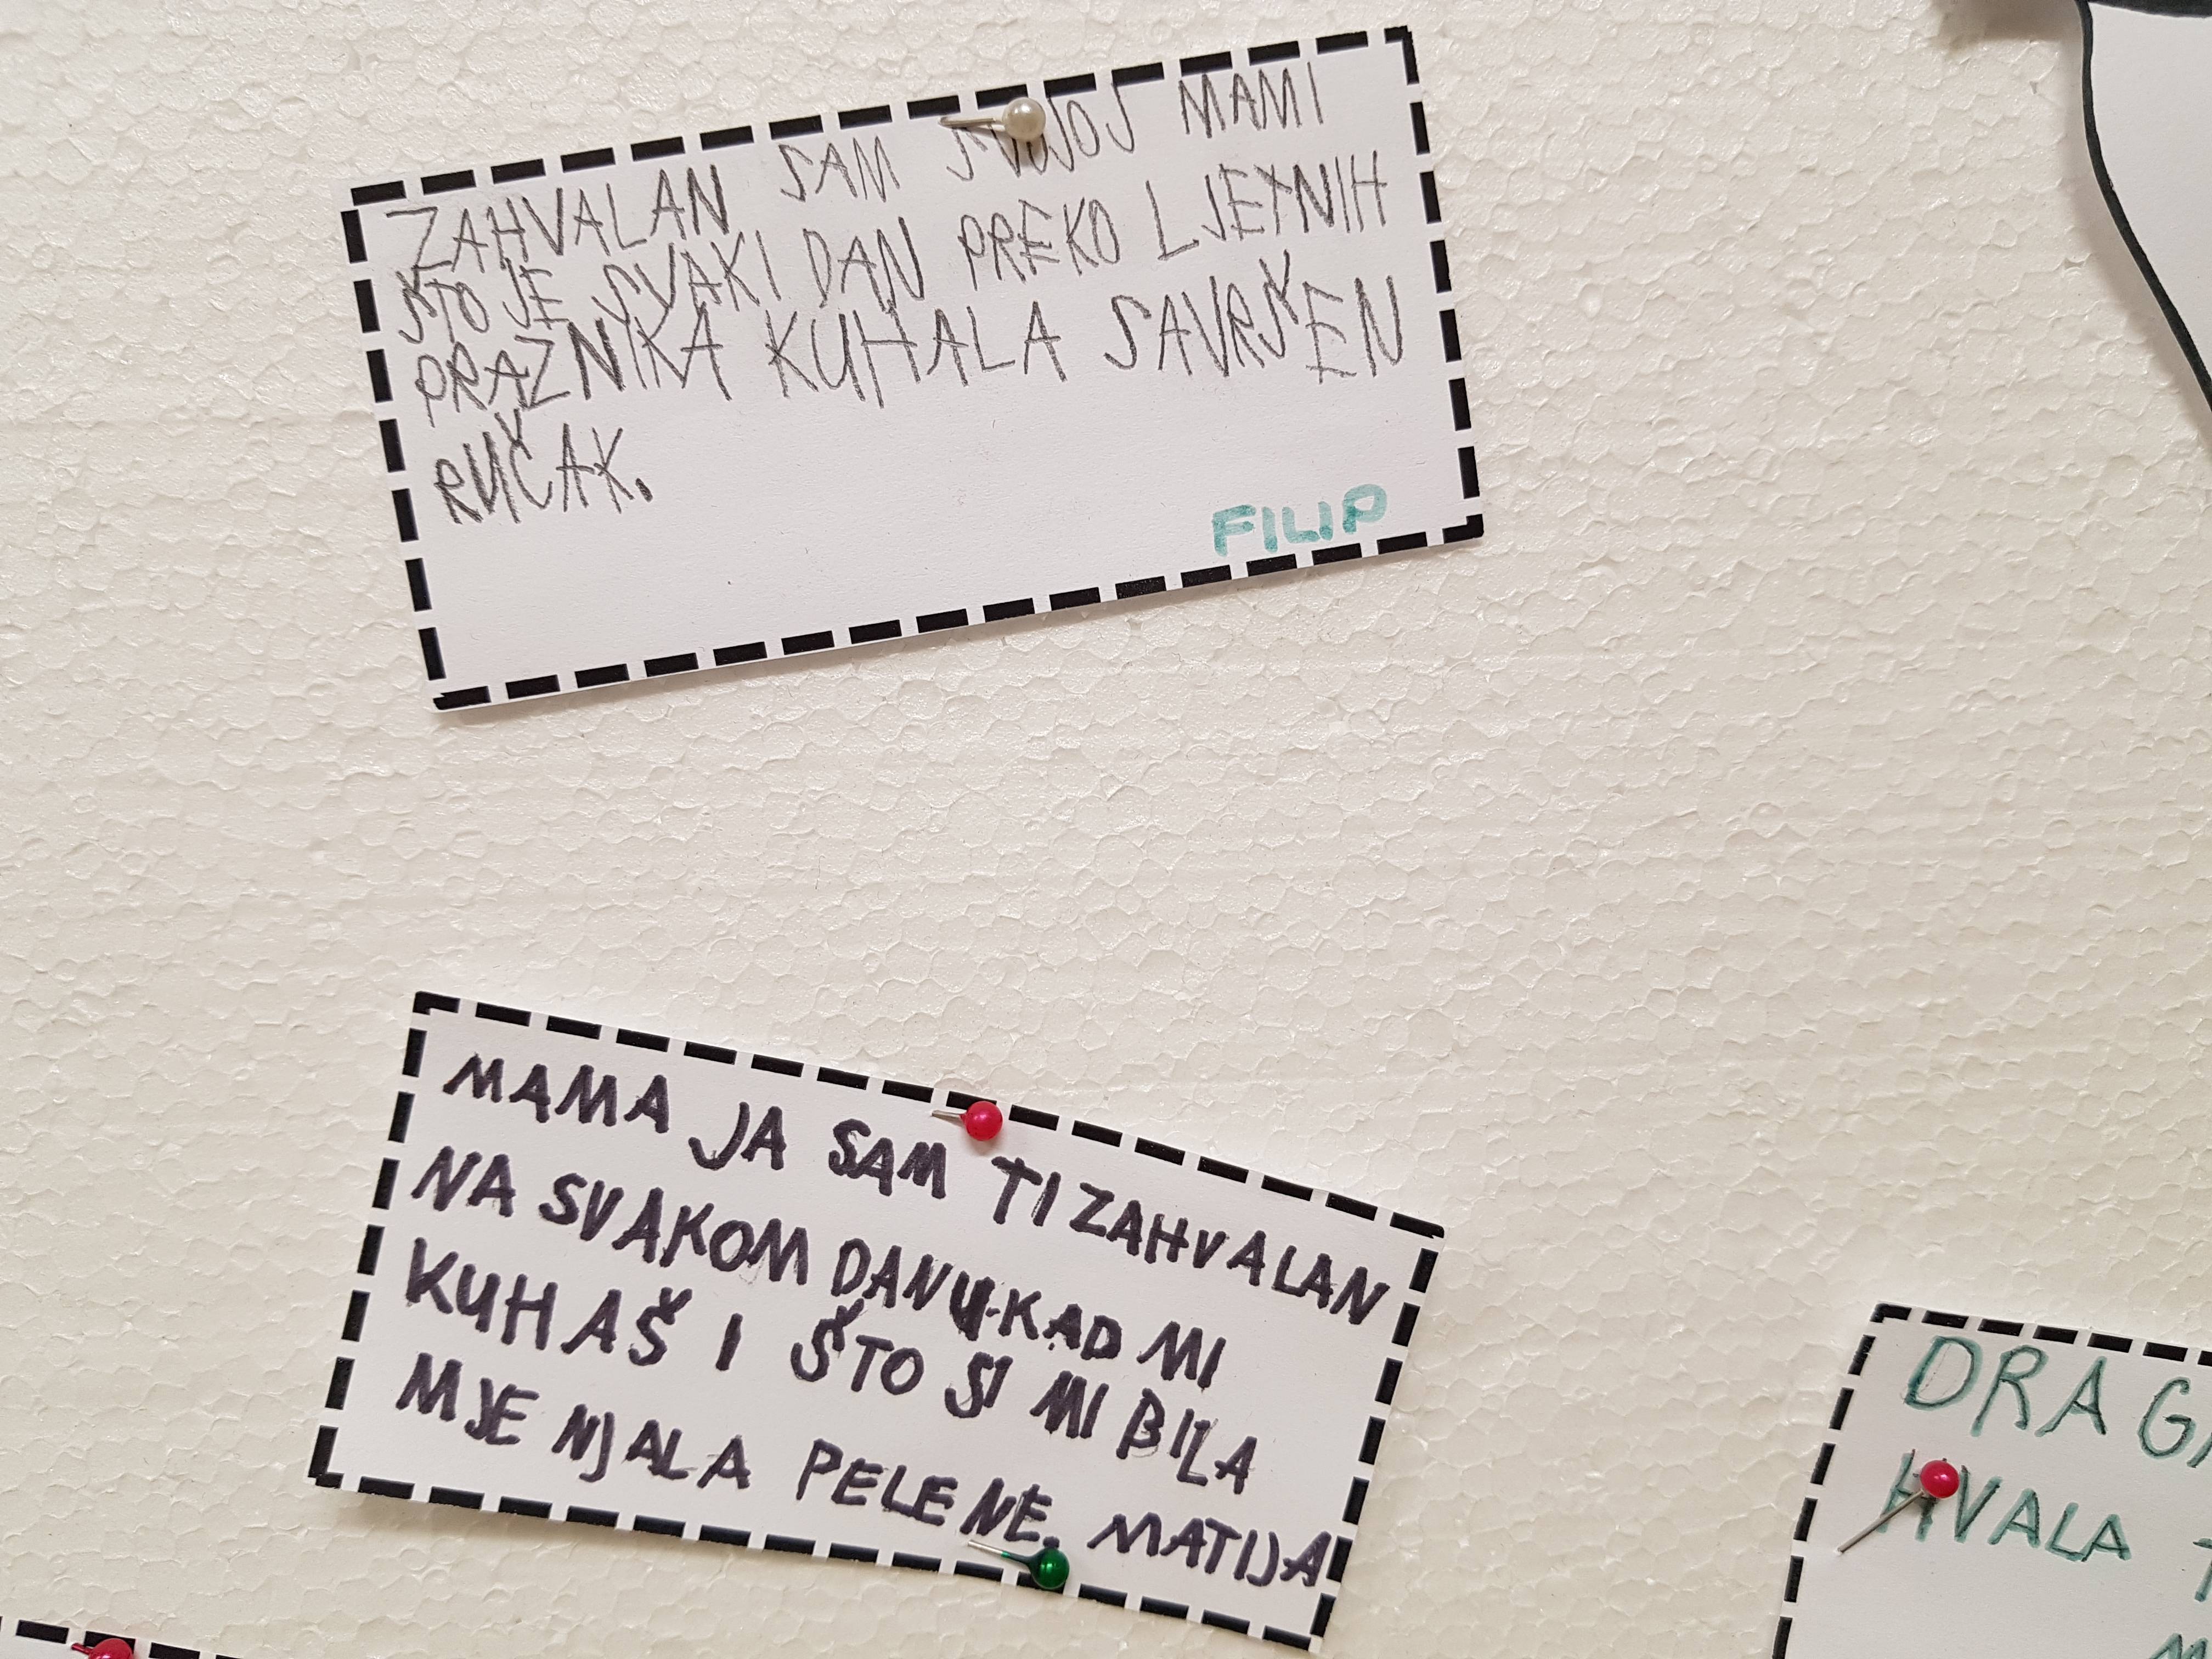 ZAHVALAN SAM SVOJOJ MAMI
ŠTO JE SVAKI DAN PREKO LJETNIH
PRAZNIKA KUHALA SAVRŠEN
RUČAK.
FILIP
MAMA JA SAM TI ZAHVALAN
NA SVAKOM DANU KAD MI
KUHAŠ I ŠTO SI MI BILA
MJENJALA PELENE. MATIJA
HVALA